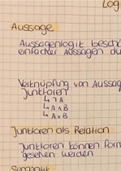 Log
Aussage
Aussagenlogik besch
einfacher Aussagen du
Verknüpfung von Aussag
Junktoren
↳ ¬A
↳ A ∧ B
↳ A ∨ B
Junktoren als Relation
Junktoren können For
gesehen werden